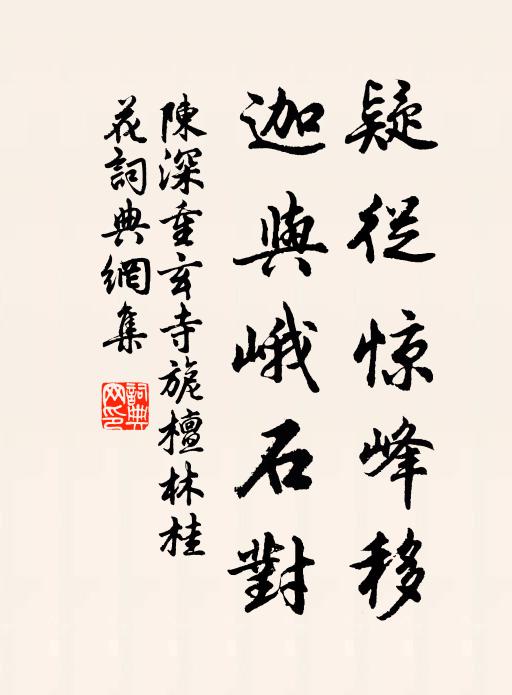 疑從惊峰移
迦與峨石對
陳深重玄寺旃檀林桂
花詞典網集
詞典
网印